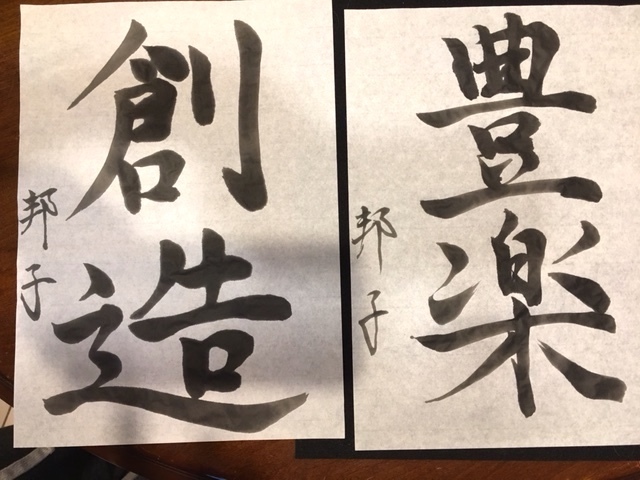 豊楽
邦子
創造
邦子